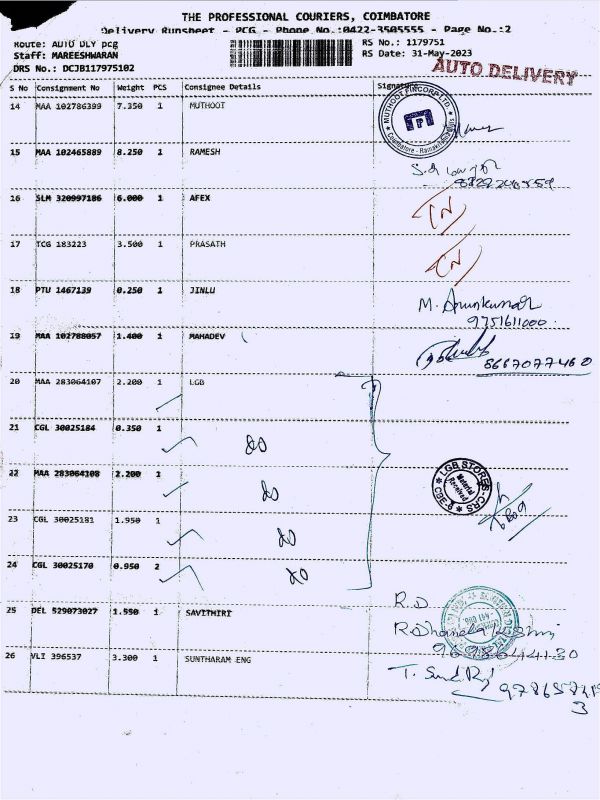 THE PROFESSIONAL COURIERS, COIMBATORE
Delivery Runsheet - PCG - Phone No.:0422-3505555 - Page No.:2
Route: AUTO DLY pcg
Staff: MAREESHWARAN
DRS No.: DCJB117975102
RS No.: 1179751
RS Date: 31-May-2023
AUTO DELIVERY
S No Consignment No Weight PCS Consignee Details Signature
14 MAA 102786399 7.350 1 MUTHOOT
MUTHOOT FINCORP LTD
Coimbatore
15 MAA 102465889 8.250 1 RAMESH
16 SLM 320997186 6.000 1 AFEX
17 TCG 183223 3.500 1 PRASATH
18 PTU 1467139 0.250 1 JINLU
M. Arunkumar
9751611000
19 MAA 102788057 1.400 1 MAHADEV
8667077460
20 MAA 283064107 2.200 1 LGB
21 CGL 30025184 0.350 1
22 MAA 283064108 2.200 1
LGB STORES-CRS
Material Received
CBE-9
23 CGL 30025181 1.950 1
24 CGL 30025170 0.950 2
25 DEL 529073027 1.550 1 SAVITHIRI
R.D
9698644130
26 VLI 396537 3.300 1 SUNTHARAM ENG